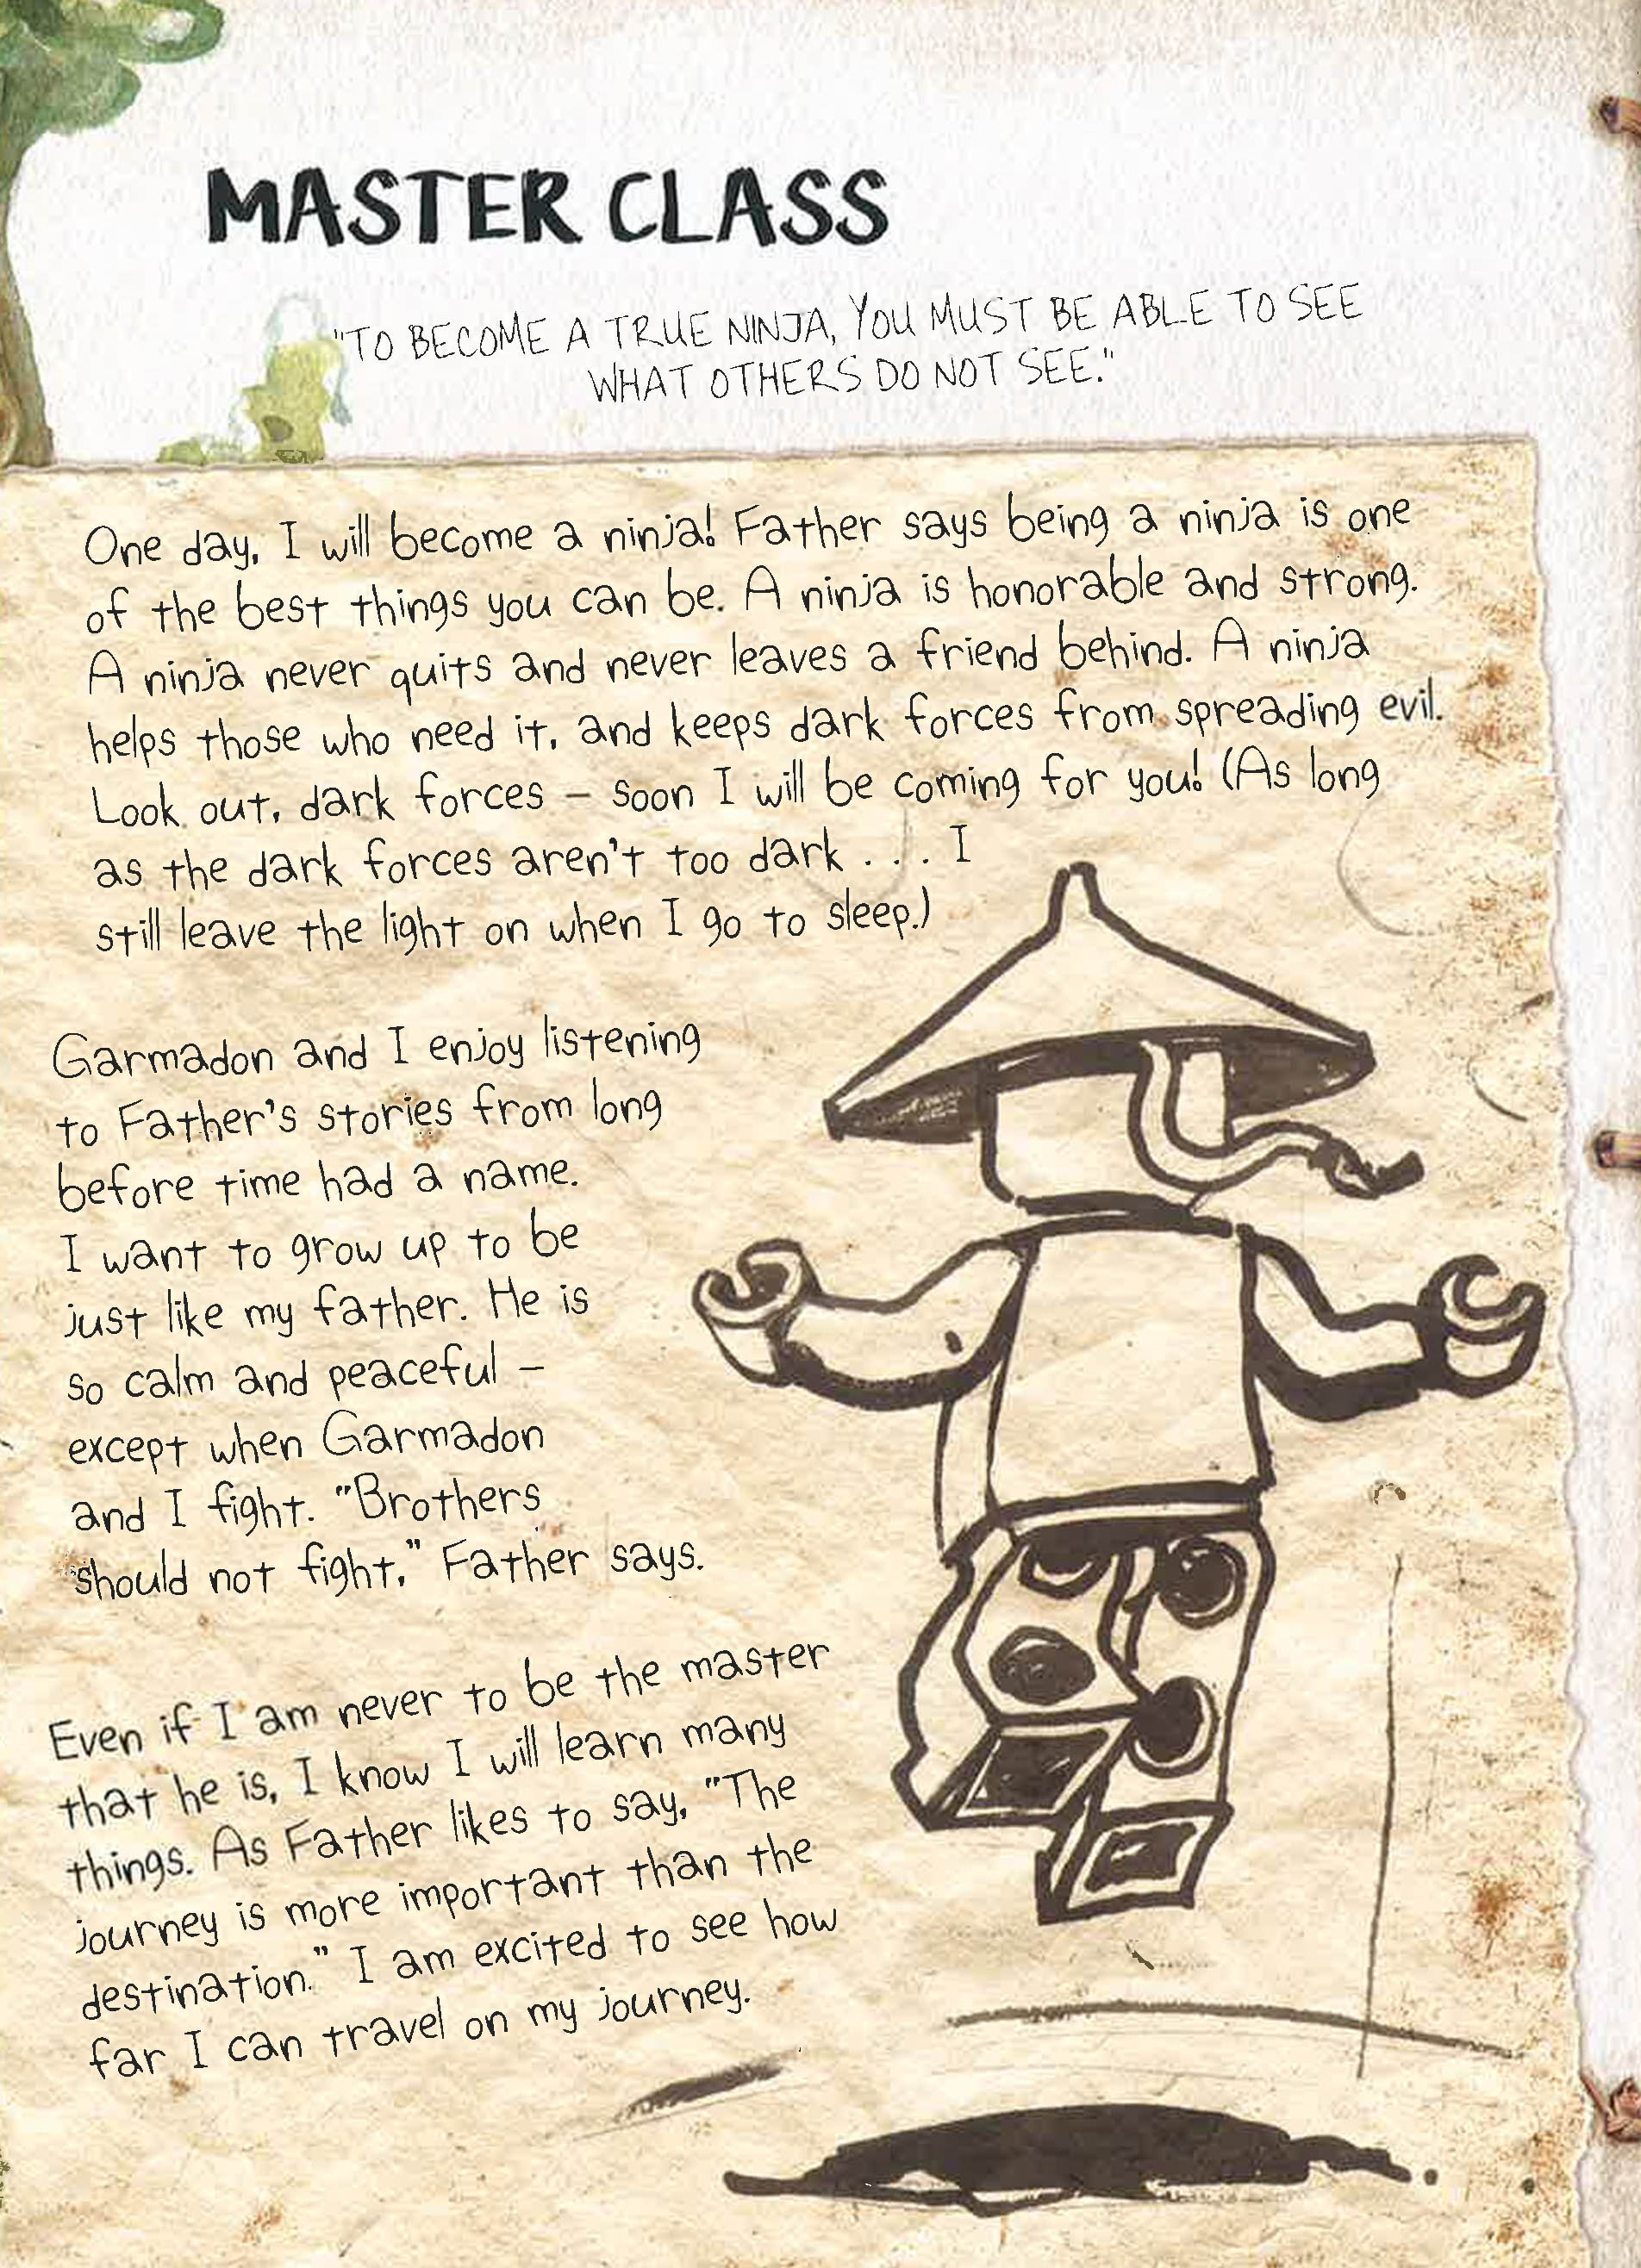 MASTER CLASS
"TO BECOME A TRUE NINJA, YOU MUST BE ABLE TO SEE
WHAT OTHERS DO NOT SEE."
One day, I will become a ninja! Father says being a ninja is one
of the best things you can be. A ninja is honorable and strong.
A ninja never quits and never leaves a friend behind. A ninja
helps those who need it, and keeps dark forces from spreading evil.
Look out, dark forces – soon I will be coming for you! (As long
as the dark forces aren't too dark . . . I
still leave the light on when I go to sleep.)
Garmadon and I enjoy listening
to Father's stories from long
before time had a name.
I want to grow up to be
just like my father. He is
so calm and peaceful –
except when Garmadon
and I fight. "Brothers
should not fight," Father says.
Even if I am never to be the master
that he is, I know I will learn many
things. As Father likes to say, "The
journey is more important than the
destination." I am excited to see how
far I can travel on my journey.